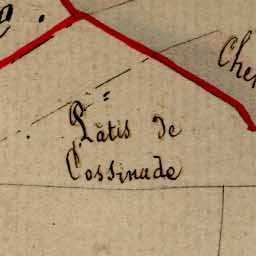 Che
Pâtis de
Cossinade